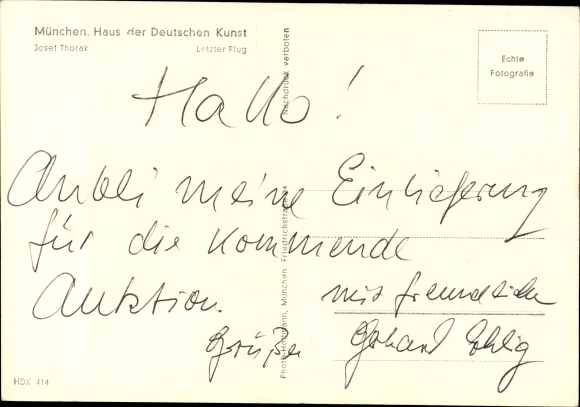 München. Haus der Deutschen Kunst
Josef Thorak Letzter Flug
Echte
Fotografie
Nachdruck verboten
Hallo!
Anbei meine Einlieferung
für die kommende
Auktion.
mit freundlichen
Grüßen Gerhard
Photo-Hoffmann, München Friedrichstrasse
HDK 414